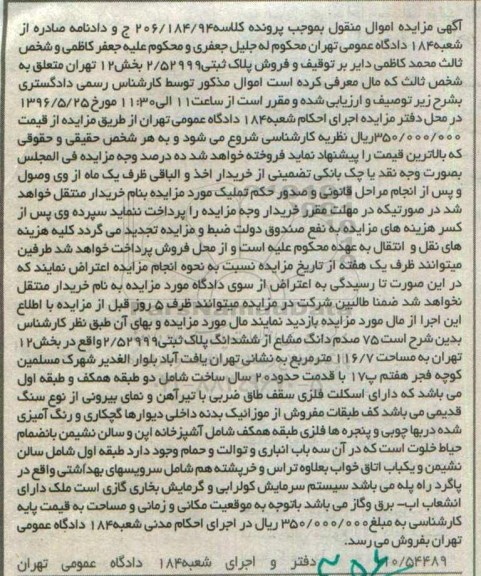 آگهی مزایده اموال منقول بموجب پرونده کلاسه۲۰۶/۱۸۴/۹۴ ج و دادنامه صادره از
شعبه۱۸۴ دادگاه عمومی تهران محکوم له جلیل جعفری و محکوم علیه جعفر کاظمی و شخص
ثالث محمد کاظمی دایر بر توقیف و فروش پلاک ثبتی۲/۵۲۹۹۹ بخش۱۲ تهران متعلق به
شخص ثالث که مال معرفی کرده است اموال مذکور توسط کارشناس رسمی دادگستری
بشرح زیر توصیف و ارزیابی شده و مقرر است از ساعت۱۱ الی۱۱:۳۰ مورخ۱۳۹۶/۵/۲۵
در محل دفتر مزایده اجرای احکام شعبه۱۸۴ دادگاه عمومی تهران از طریق مزایده از قیمت
۳۵۰/۰۰۰/۰۰۰ریال نظریه کارشناسی شروع می شود و به هر شخص حقیقی و حقوقی
که بالاترین قیمت را پیشنهاد نماید فروخته خواهد شد ده درصد وجه مزایده فی المجلس
بصورت وجه نقد یا چک بانکی تضمینی از خریدار اخذ و الباقی ظرف یک ماه از وی وصول
و پس از انجام مراحل قانونی و صدور حکم تملیک مورد مزایده بنام خریدار منتقل خواهد
شد در صورتیکه در مهلت مقرر خریدار وجه مزایده را پرداخت ننماید سپرده وی پس از
کسر هزینه های مزایده به نفع صندوق دولت ضبط و مزایده تجدید می گردد کلیه هزینه
های نقل و انتقال به عهده محکوم علیه است و از محل فروش پرداخت خواهد شد طرفین
میتوانند ظرف یک هفته از تاریخ مزایده نسبت به نحوه انجام مزایده اعتراض نمایند که
در این صورت تا رسیدگی به اعتراض از سوی دادگاه مورد مزایده به نام خریدار منتقل
نخواهد شد ضمنا طالبین شرکت در مزایده میتوانند ظرف ۵ روز قبل از مزایده با اطلاع
این اجرا از مال مورد مزایده بازدید نمایند مال مورد مزایده و بهای آن طبق نظر کارشناس
بدین شرح است ۷۵ صدم دانگ مشاع از ششدانگ پلاک ثبتی۲/۵۲۹۹۹واقع در بخش۱۲
تهران به مساحت ۱۱۶/۷ مترمربع به نشانی تهران یافت آباد بلوار الغدیر شهرک مسلمین
کوچه فجر هفتم پ۱۷ با قدمت حدود۲۰ سال ساخت شامل دو طبقه همکف و طبقه اول
می باشد که دارای اسکلت فلزی سقف طاق ضربی با تیرآهن و نمای بیرونی از نوع سنگ
قدیمی می باشد کف طبقات مفروش از موزائیک بدنه داخلی دیوارها گچکاری و رنگ آمیزی
شده دربها چوبی و پنجره ها فلزی طبقه همکف شامل آشپزخانه اپن و سالن نشیمن بانضمام
حیاط خلوت است که در آن سه باب انباری و توالت و حمام وجود دارد طبقه اول شامل سالن
نشیمن و یکباب اتاق خواب بعلاوه تراس و خرپشته هم شامل سرویسهای بهداشتی واقع در
پاگرد راه پله می باشد سیستم سرمایش کولرابی و گرمایش بخاری گازی است ملک دارای
انشعاب اب- برق وگاز می باشد باتوجه به موقعیت مکانی و زمانی و مساحت به قیمت پایه
کارشناسی به مبلغ۳۵۰/۰۰۰/۰۰۰ ریال در اجرای احکام مدنی شعبه۱۸۴ دادگاه عمومی
تهران بفروش می رسد.
۱۰/۵۴۴۸۹ دفتر و اجرای شعبه۱۸۴ دادگاه عمومی تهران